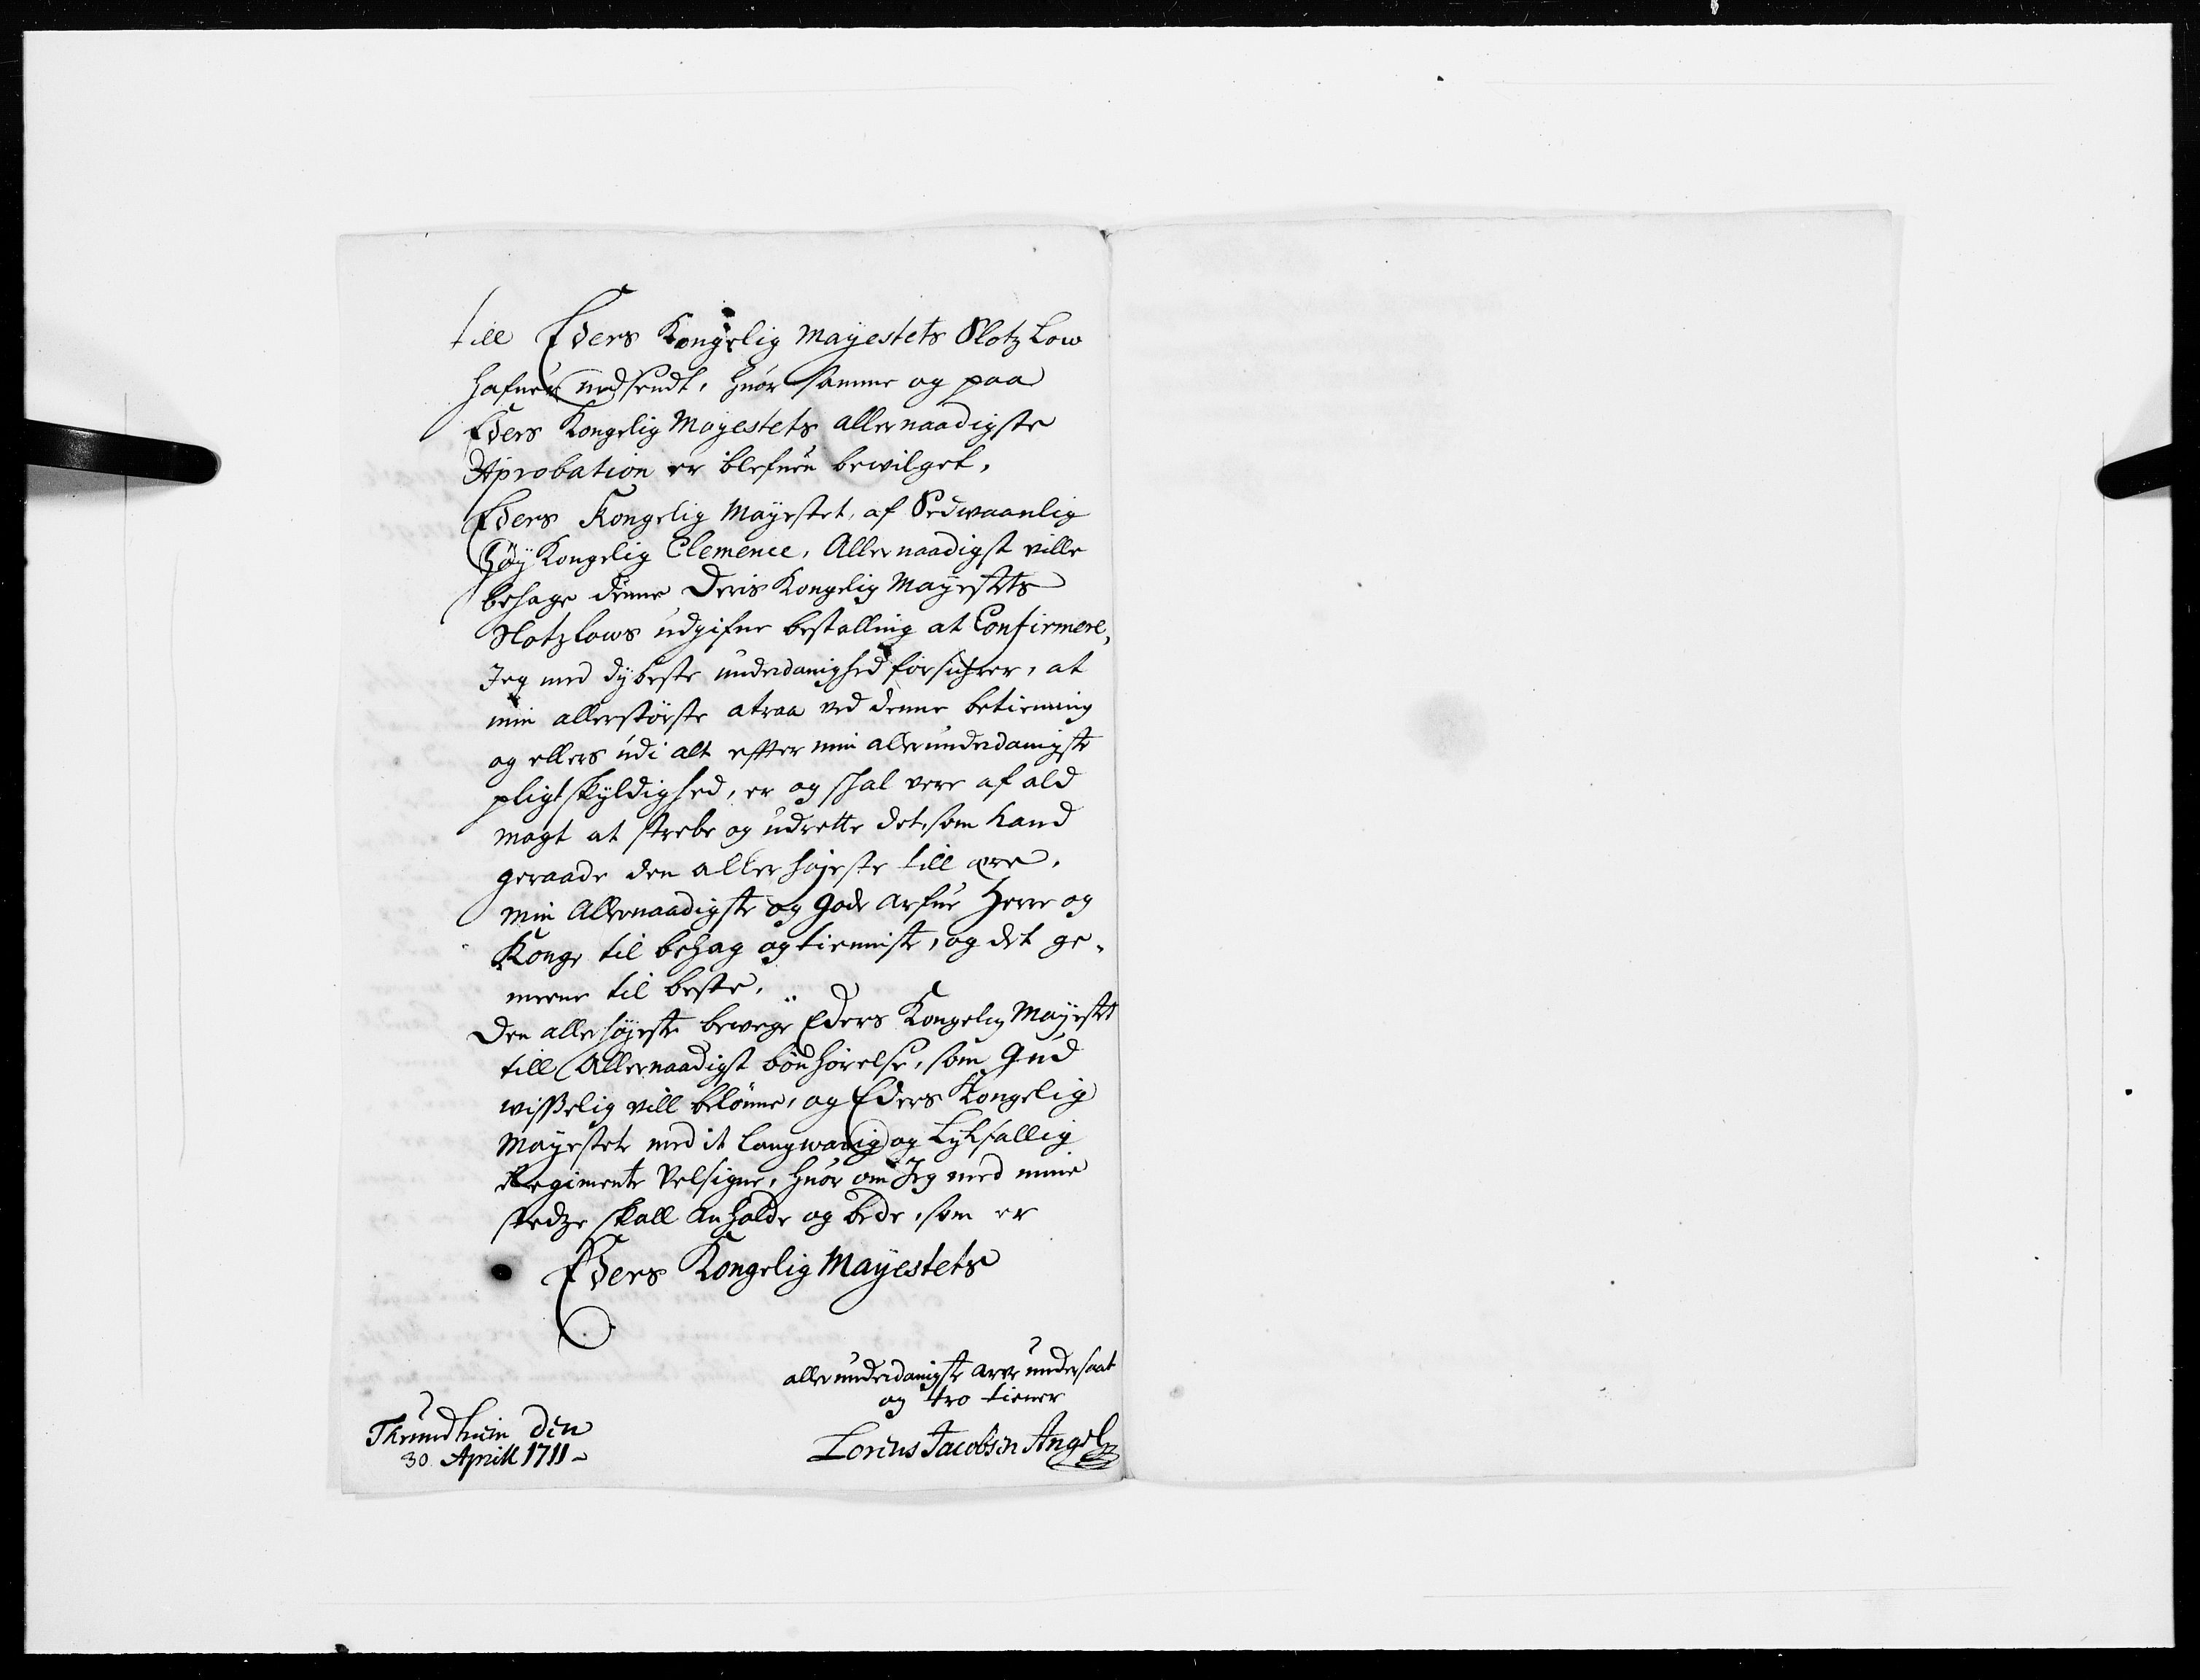 till Eders Kongelig Mayestets Slotz Low
hafuer nedsendt, huor samme og paa
Eders Kongelig Mayestets allernaadigste
Aprobation er blefuen bewilget,
Eders Kongelig Mayestet, af Sedwaanlig
Høy Kongelig Clemence, Allernaadigst ville
behage denne Deris Kongelig Mayestets
Slotzlows udgifne bestalling at Confirmere,
Jeg med dybeste underdanighed forsichrer, at
min allerstörste atraa ved denne betienning
og ellers udi alt effter min allerunderdanigste
pligtskyldighed, er og skal vere af ald
magt at strebe og udrette det, som kand
geraade den allerhøjeste till ære,
min Allernaadigste og gode arfue Herre og
Konge til behag og tienniste, og det ge-
meene til beste,
Den allerhøjeste bewege Eders Kongelig Mayestet
till Allernaadigst bönhörelse, som Gud
wisselig vill belönne, og Eders Kongelig
Mayestet med it langwarig og Lyksallig
Regimente Velsigne, huor om Jeg med mine
stedze skall anholde og bede, som er
Eders Kongelig Mayestets
allerunderdanigste arve undersaat
og tro tiener
Lorens Jacobsen Angel
Thrundhiem den
30 Aprill 1711